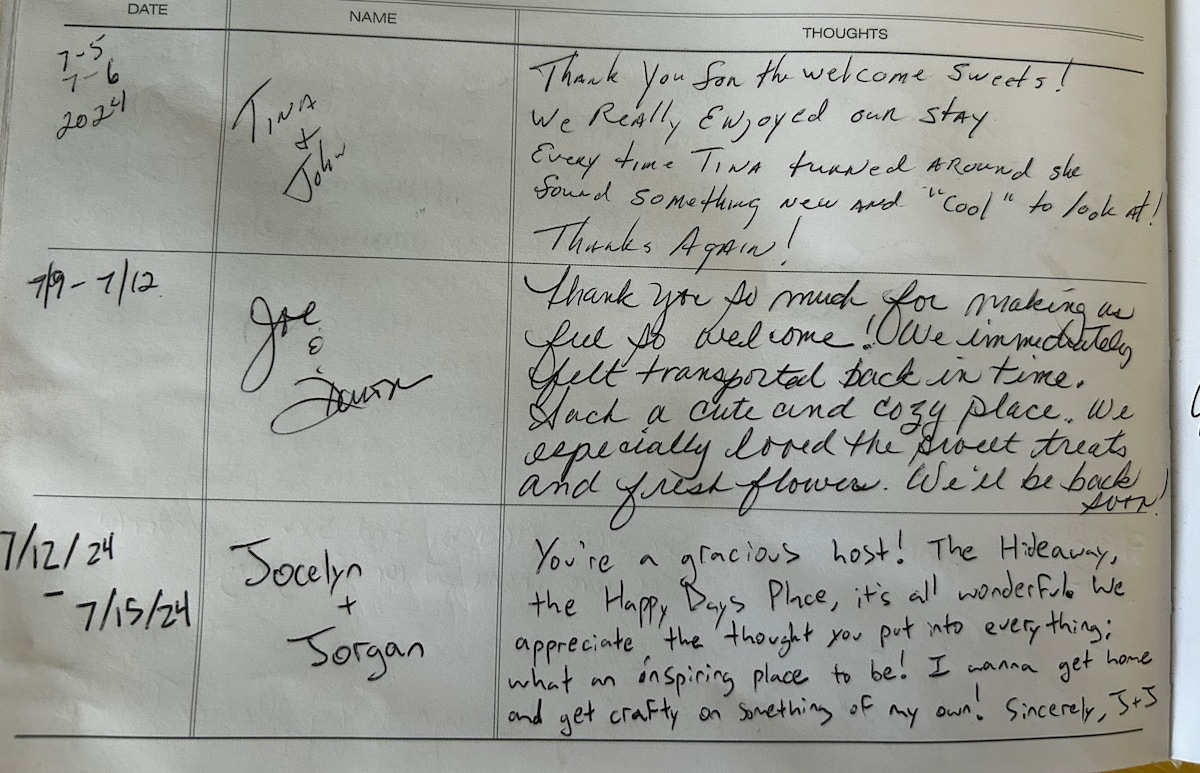 DATE
NAME
THOUGHTS
7-5
7-6
2024
TINA
&
John
Thank You for the welcome Sweets!
We Really Enjoyed our stay
Every time TINA turned Around she
found something new and "Cool" to look at!
Thanks Again!
7/9 - 7/12
Joe
&
Thank you so much for making us
feel so welcome! We immediately
felt transported back in time.
Such a cute and cozy place. We
especially loved the sweet treats
and fresh flowers. We'll be back
soon!
7/12/24
-
7/15/24
Jocelyn
+
Jorgan
You're a gracious host! The Hideaway,
the Happy Days Place, it's all wonderful. We
appreciate the thought you put into everything;
what an inspiring place to be! I wanna get home
and get crafty on something of my own! Sincerely, J+J